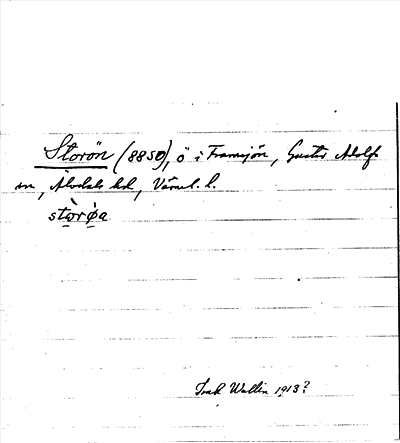 Storön (8850), ö i Framsjön, Gustav Adolfs
sn, Älvdals hd, Värml. l.
stòrø̀a
Wallin 1913?